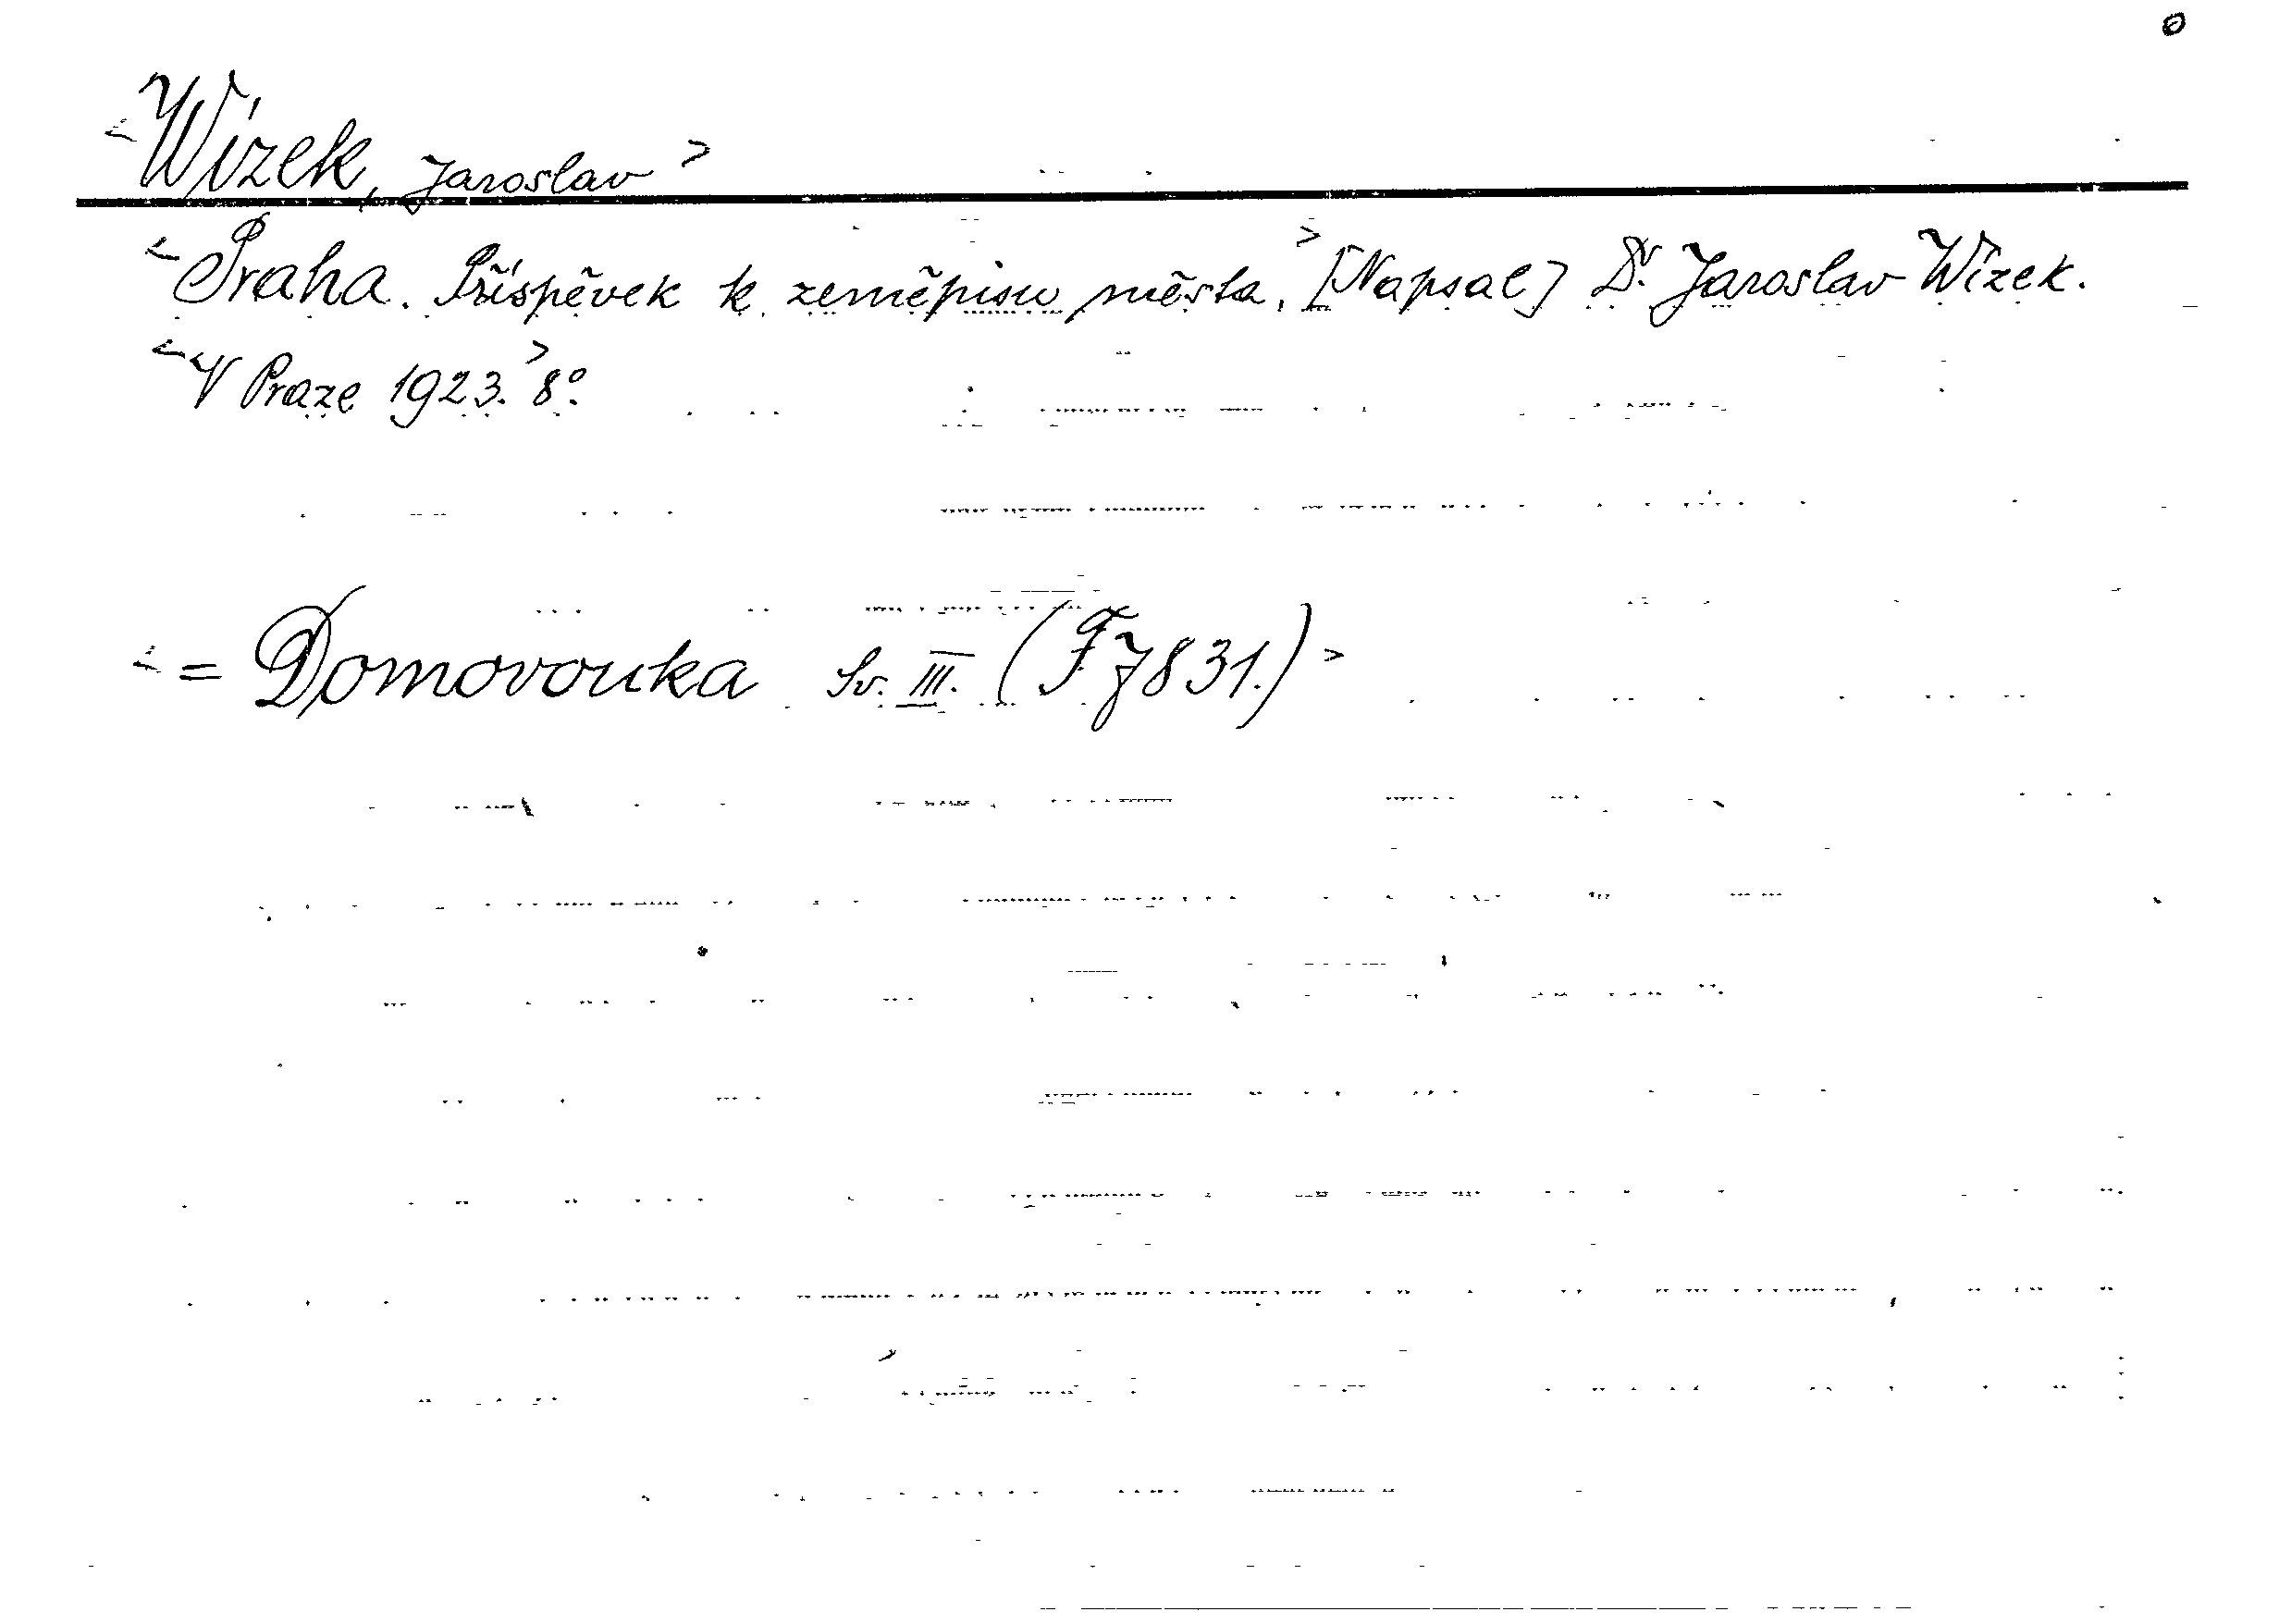 <Wízek, Jaroslav>
<Praha. Příspěvek k zeměpisu města.> [Napsal] Dr. Jaroslav Wízek.
<V Praze 1923.> 8°.
<= Domovouka Sv. III. (F 7831.)>